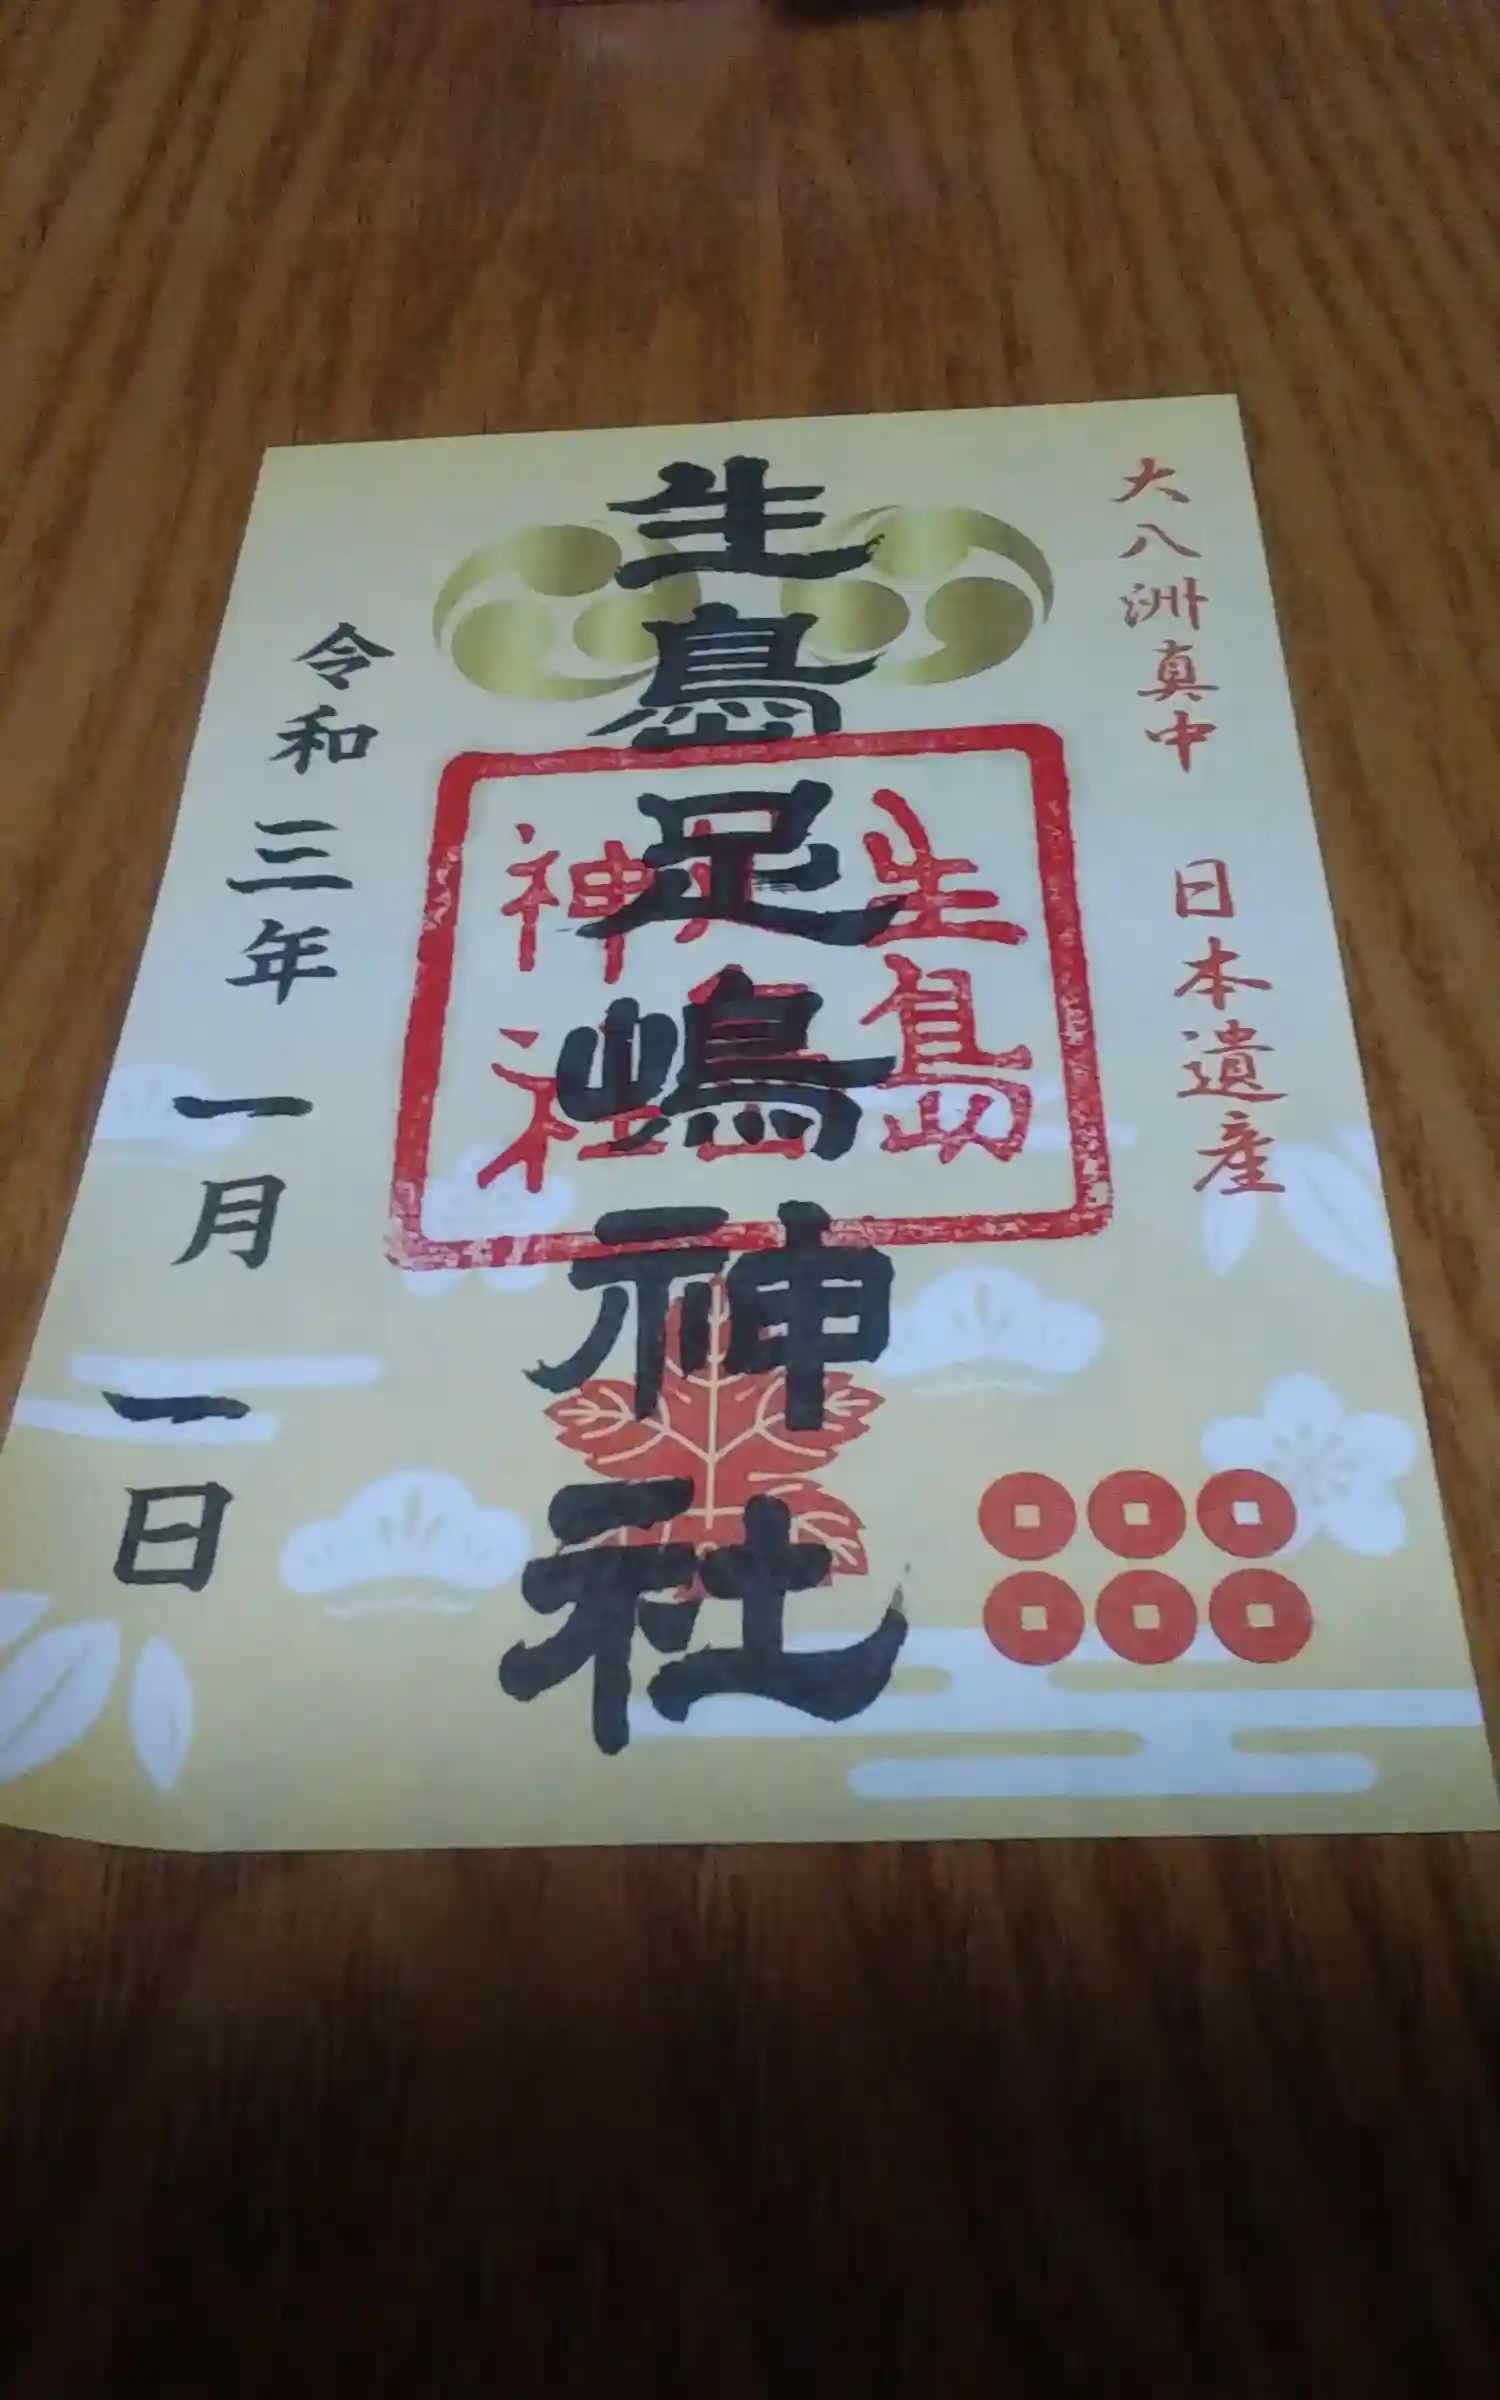 大八洲真中 日本遺産
生島足嶋神社
生島足島神社
令和三年一月一日